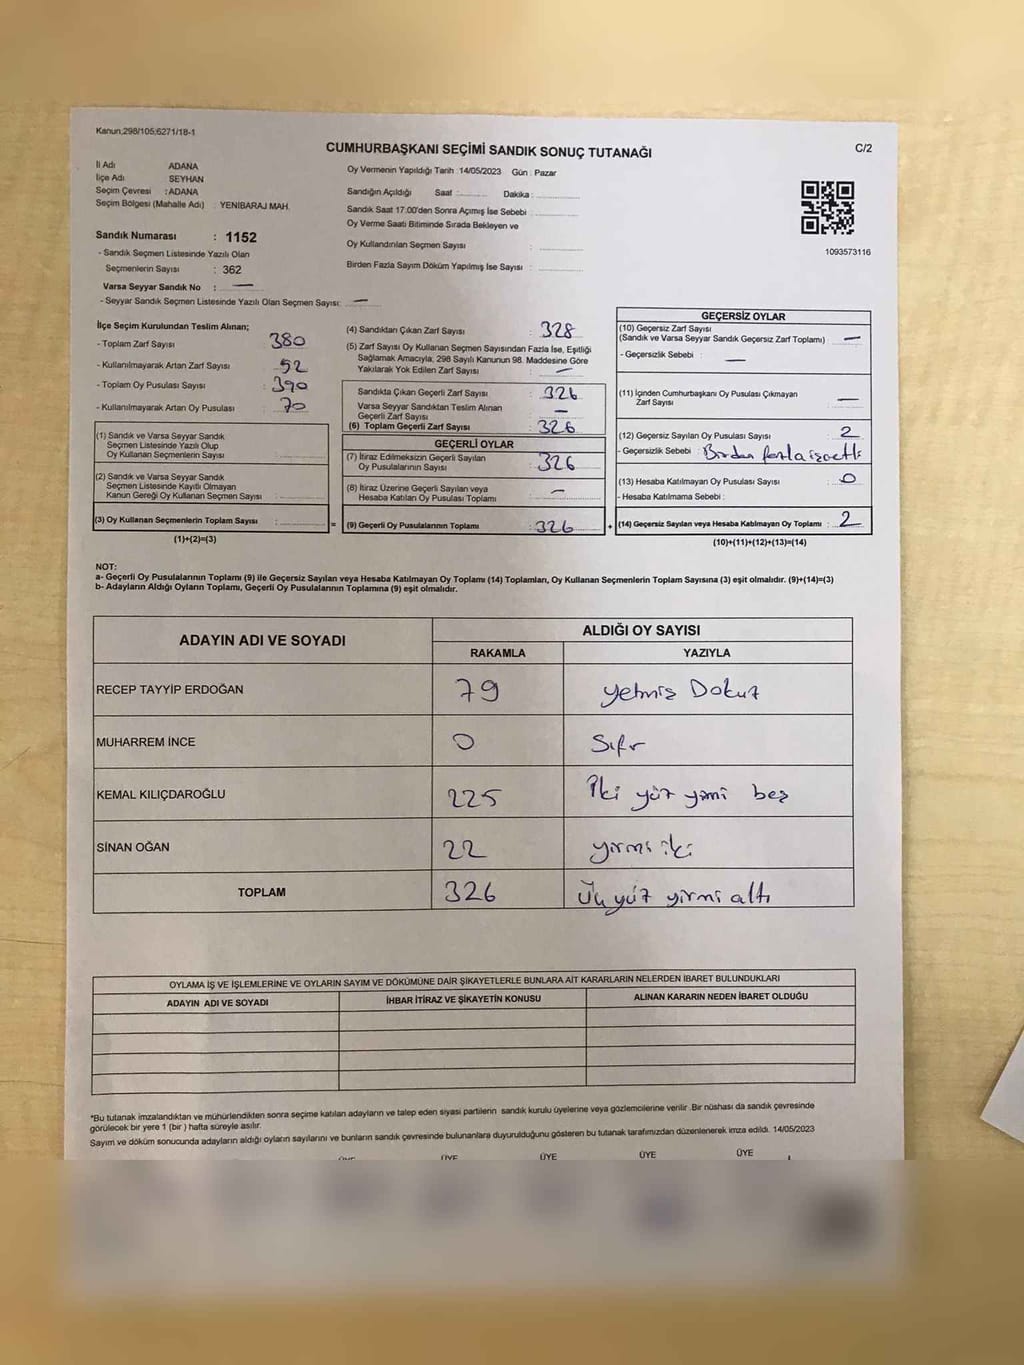 Kanun,298/105;6271/18-1
CUMHURBAŞKANI SEÇİMİ SANDIK SONUÇ TUTANAĞI
C/2
İl Adı ADANA
İlçe Adı SEYHAN
Seçim Çevresi :ADANA
Seçim Bölgesi (Mahalle Adı) : YENİBARAJ MAH.
Sandık Numarası : 1152
- Sandık Seçmen Listesinde Yazılı Olan
Seçmenlerin Sayısı : 362
Varsa Seyyar Sandık No : —
- Seyyar Sandık Seçmen Listesinde Yazılı Olan Seçmen Sayısı: —
Oy Vermenin Yapıldığı Tarih :14/05/2023 Gün : Pazar
Sandığın Açıldığı Saat :.......... Dakika :..........
Sandık Saat 17.00'den Sonra Açımış İse Sebebi :..........
Oy Verme Saati Bitiminde Sırada Bekleyen ve
Oy Kullandırılan Seçmen Sayısı :..........
Birden Fazla Sayım Döküm Yapılmış İse Sayısı :..........
1093573116
İlçe Seçim Kurulundan Teslim Alınan;
- Toplam Zarf Sayısı : 380
- Kullanılmayarak Artan Zarf Sayısı : 52
- Toplam Oy Pusulası Sayısı : 390
- Kullanılmayarak Artan Oy Pusulası : 70
(1) Sandık ve Varsa Seyyar Sandık
Seçmen Listesinde Yazılı Olup
Oy Kullanan Seçmenlerin Sayısı :..........
(2) Sandık ve Varsa Seyyar Sandık
Seçmen Listesinde Kayıtlı Olmayan
Kanun Gereği Oy Kullanan Seçmen Sayısı :..........
(3) Oy Kullanan Seçmenlerin Toplam Sayısı :.......... =
(1)+(2)=(3)
(4) Sandıktan Çıkan Zarf Sayısı : 328
(5) Zarf Sayısı Oy Kullanan Seçmen Sayısından Fazla İse, Eşitliği
Sağlamak Amacıyla, 298 Sayılı Kanunun 98. Maddesine Göre
Yakılarak Yok Edilen Zarf Sayısı : —
Sandıkta Çıkan Geçerli Zarf Sayısı : 326
Varsa Seyyar Sandıktan Teslim Alınan
Geçerli Zarf Sayısı : —
(6) Toplam Geçerli Zarf Sayısı : 326
GEÇERLİ OYLAR
(7) İtiraz Edilmeksizin Geçerli Sayılan
Oy Pusulalarının Sayısı : 326
(8) İtiraz Üzerine Geçerli Sayılan veya
Hesaba Katılan Oy Pusulası Toplamı : —
(9) Geçerli Oy Pusulalarının Toplamı : 326 +
GEÇERSİZ OYLAR
(10) Geçersiz Zarf Sayısı
(Sandık ve Varsa Seyyar Sandık Geçersiz Zarf Toplamı) : —
- Geçersizlik Sebebi : —
(11) İçinden Cumhurbaşkanı Oy Pusulası Çıkmayan
Zarf Sayısı : —
(12) Geçersiz Sayılan Oy Pusulası Sayısı : 2
- Geçersizlik Sebebi : Birden fazla işaretli
(13) Hesaba Katılmayan Oy Pusulası Sayısı : 0
- Hesaba Katılmama Sebebi :
(14) Geçersiz Sayılan veya Hesaba Katılmayan Oy Toplamı : 2
(10)+(11)+(12)+(13)=(14)
NOT:
a- Geçerli Oy Pusulalarının Toplamı (9) ile Geçersiz Sayılan veya Hesaba Katılmayan Oy Toplamı (14) Toplamları, Oy Kullanan Seçmenlerin Toplam Sayısına (3) eşit olmalıdır. (9)+(14)=(3)
b- Adayların Aldığı Oyların Toplamı, Geçerli Oy Pusulalarının Toplamına (9) eşit olmalıdır.
ADAYIN ADI VE SOYADI ALDIĞI OY SAYISI
RAKAMLA YAZIYLA
RECEP TAYYİP ERDOĞAN 79 yetmiş Dokuz
MUHARREM İNCE 0 Sıfır
KEMAL KILIÇDAROĞLU 225 İki yüz yirmi beş
SİNAN OĞAN 22 yirmi iki
TOPLAM 326 Üç yüz yirmi altı
OYLAMA İŞ VE İŞLEMLERİNE VE OYLARIN SAYIM VE DÖKÜMÜNE DAİR ŞİKAYETLERLE BUNLARA AİT KARARLARIN NELERDEN İBARET BULUNDUKLARI
ADAYIN ADI VE SOYADI İHBAR İTİRAZ VE ŞİKAYETİN KONUSU ALINAN KARARIN NEDEN İBARET OLDUĞU
*Bu tutanak imzalandıktan ve mühürlendikten sonra seçime katılan adayların ve talep eden siyasi partilerin sandık kurulu üyelerine veya gözlemcilerine verilir .Bir nüshası da sandık çevresinde
görülecek bir yere 1 (bir ) hafta süreyle asılır.
Sayım ve döküm sonucunda adayların aldığı oyların sayılarını ve bunların sandık çevresinde bulunanlara duyurulduğunu gösteren bu tutanak tarafımızdan düzenlenerek imza edildi. 14/05/2023
ÜYE ÜYE ÜYE ÜYE ÜYE